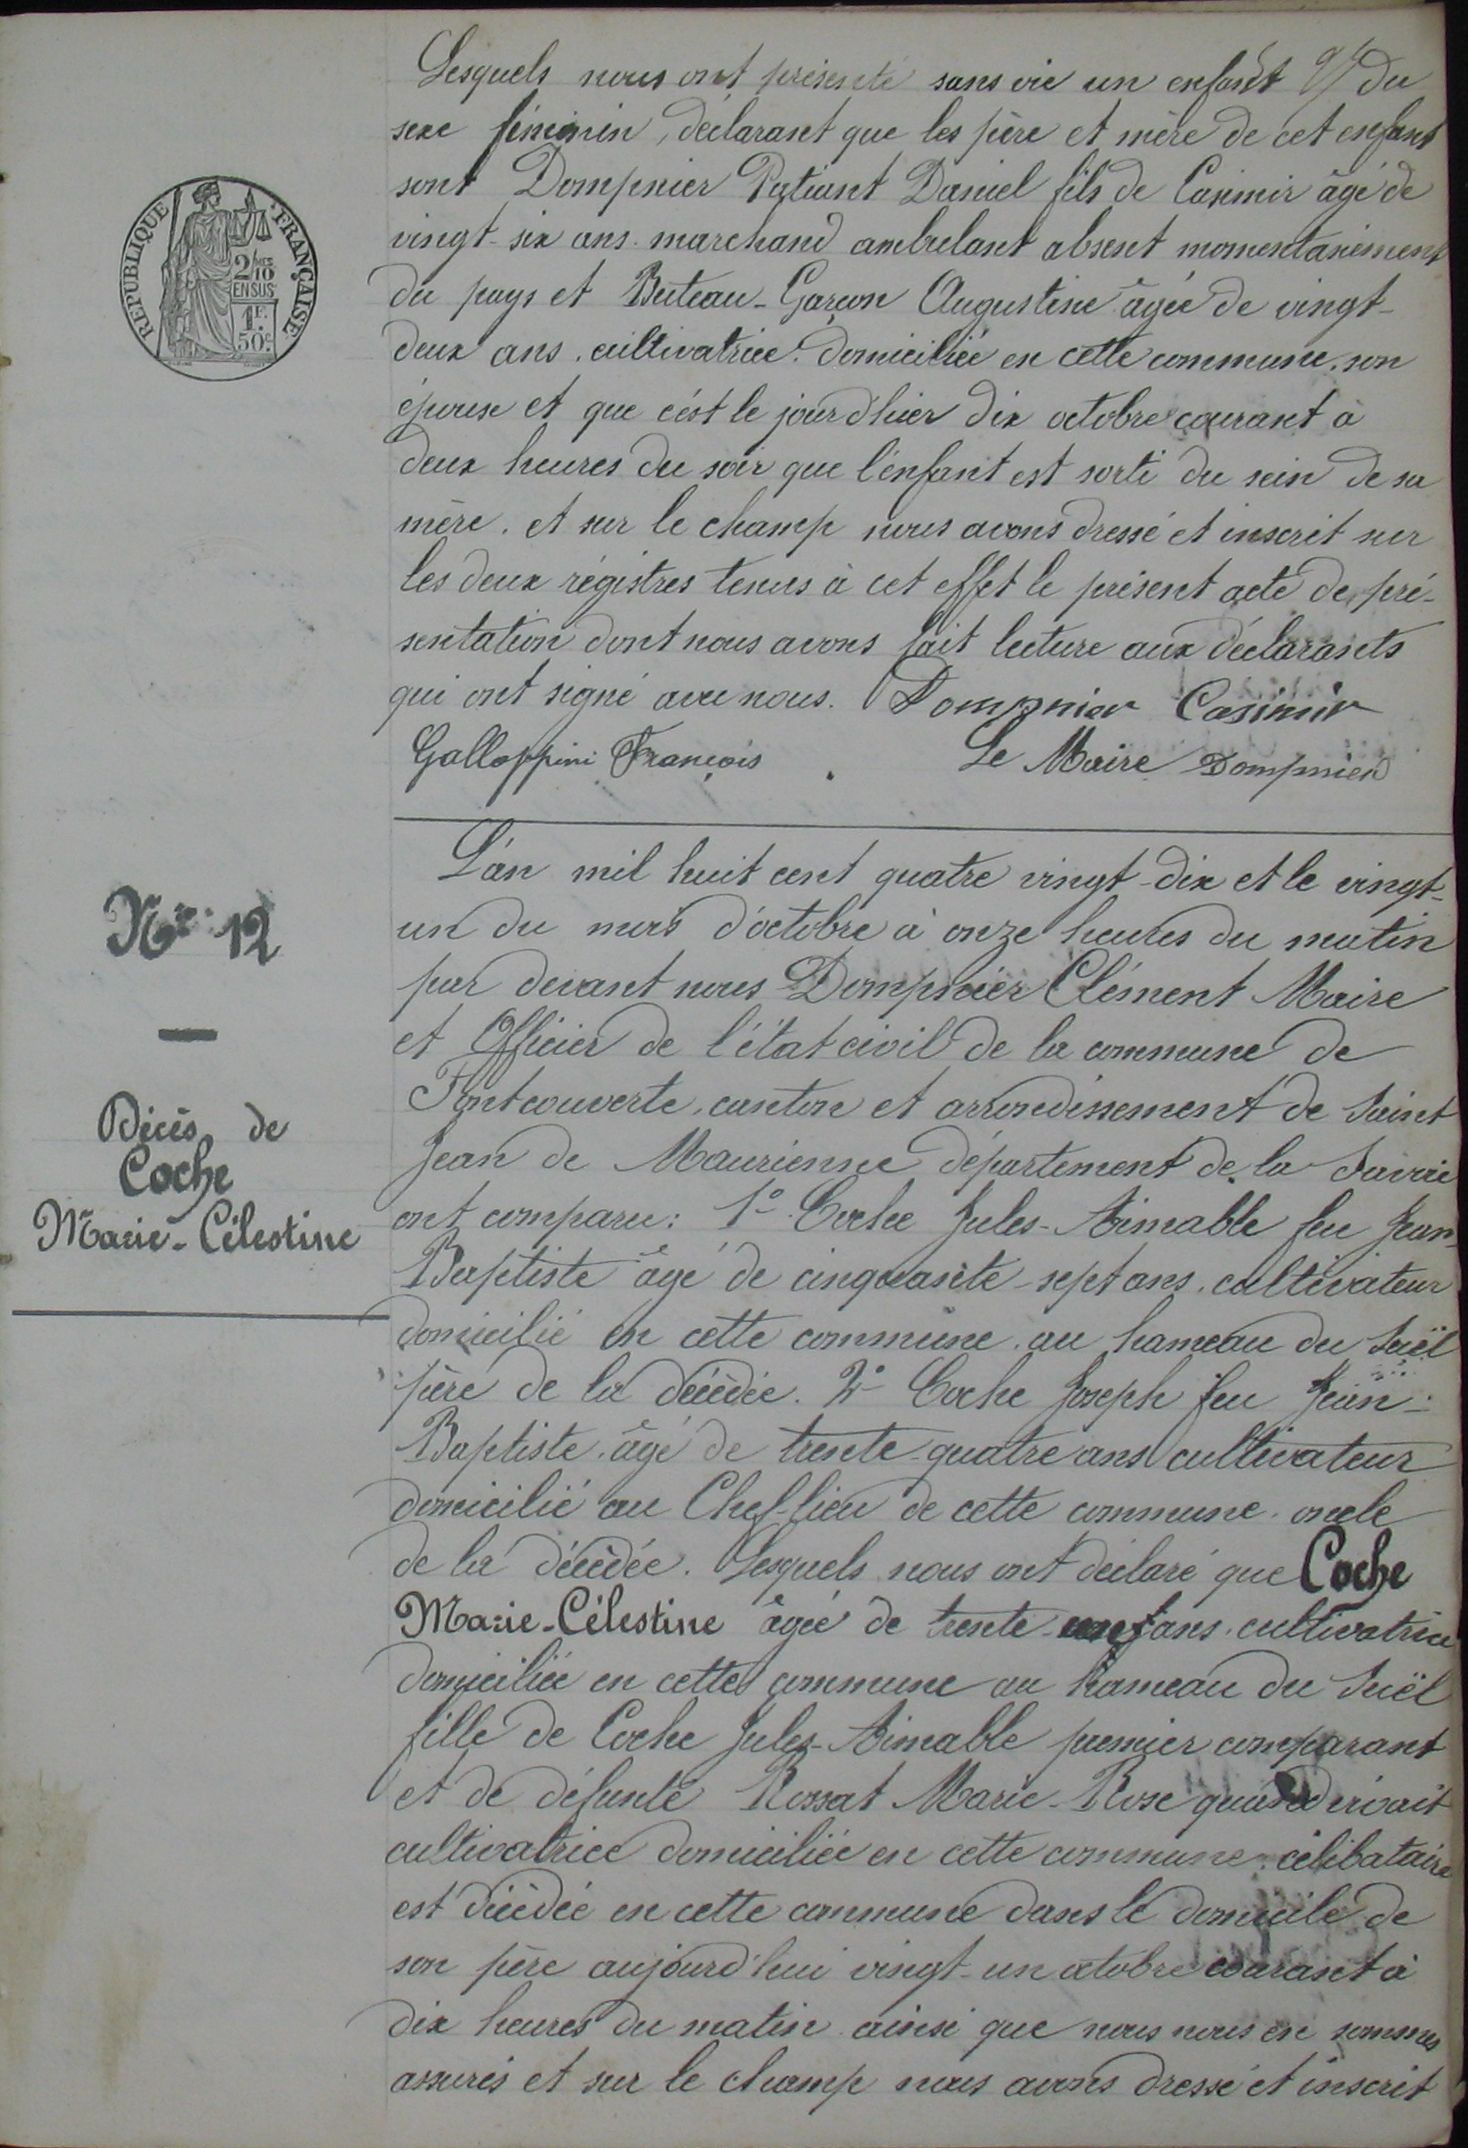 Lesquels nous ont présenté sans vie un enfant du
sexe féminin, déclarant que les père et mère de cet enfant
sont Dompnier Daniel fils de Casimir âgé de
vingt-six ans. marchand ambulant absent momentanément
du pays et Buteau-Garçon Augustine âgée de vingt-
deux ans. cultivatrice. domiciliée en cette commune. son
épouse et que c'est le jour d'hier dix octobre courant à
deux heures du soir que l'enfant est sorti du sein de sa
mère. et sur le champ nous avons dressé et inscrit sur
les deux régistres tenus à cet effet le présent acte de pré-
sentation dont nous avons fait lecture aux déclarants
qui ont signé avec nous. Dompnier Casimir
Galloppini François Le Maire Dompnier
L'an mil huit cent quatre vingt-dix et le vingt-
un du mois d'octobre à onze heures du matin
par devant nous Dompnier Clément Maire
et Officier de l'état civil de la commune de
Fontcouverte, canton et arrondissement de Saint
Jean de Maurienne département de la Savoie
ont comparu: 1º Coche Jules-Aimable feu Jean-
Baptiste âgé de cinquante-sept ans. cultivateur
domicilié en cette commune. au hameau du Suël
père de la décédée. 2º Coche Joseph feu Jean-
Baptiste. âgé de trente-quatre ans cultivateur
domicilié au Chef-lieu de cette commune. oncle
de la décédée. Lesquels nous ont déclaré que Coche
Marie-Célestine âgée de trente- ans. cultivatrice
domiciliée en cette commune au hameau du Suël
fille de Coche Jules-Aimable premier comparant
et de défunte Rossat Marie-Rose quand vivait
cultivatrice domiciliée en cette commune. célibataire
est décédée en cette commune dans le domicile de
son père aujourd'hui vingt-un octobre courant à
dix heures du matin ainsi que nous nous en sommes
assurés et sur le champ nous avons dressé et inscrit
RÉPUBLIQUE FRANÇAISE
2/10
EN SUS
1F.
50c
No 12
Décès de
Coche
Marie-Célestine